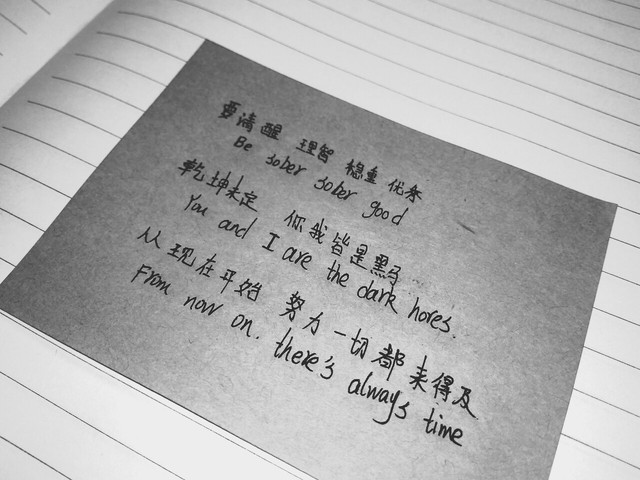 要清醒 理智 稳重 优秀
Be sober sober good
乾坤未定 你我皆是黑马
You and I are the dark hores.
从现在开始 努力一切都来得及
From now on. there's always time